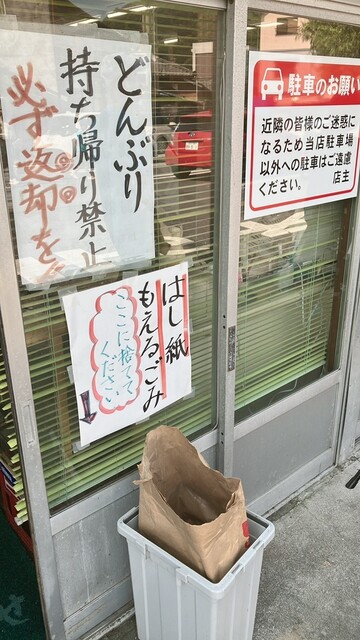 どんぶり
持ち帰り禁止
必ず返却を
駐車のお願い
近隣の皆様のご迷惑に
なるため当店駐車場
以外への駐車はご遠慮
ください。 店主
はし紙
もえるごみ
ここに捨てて
ください